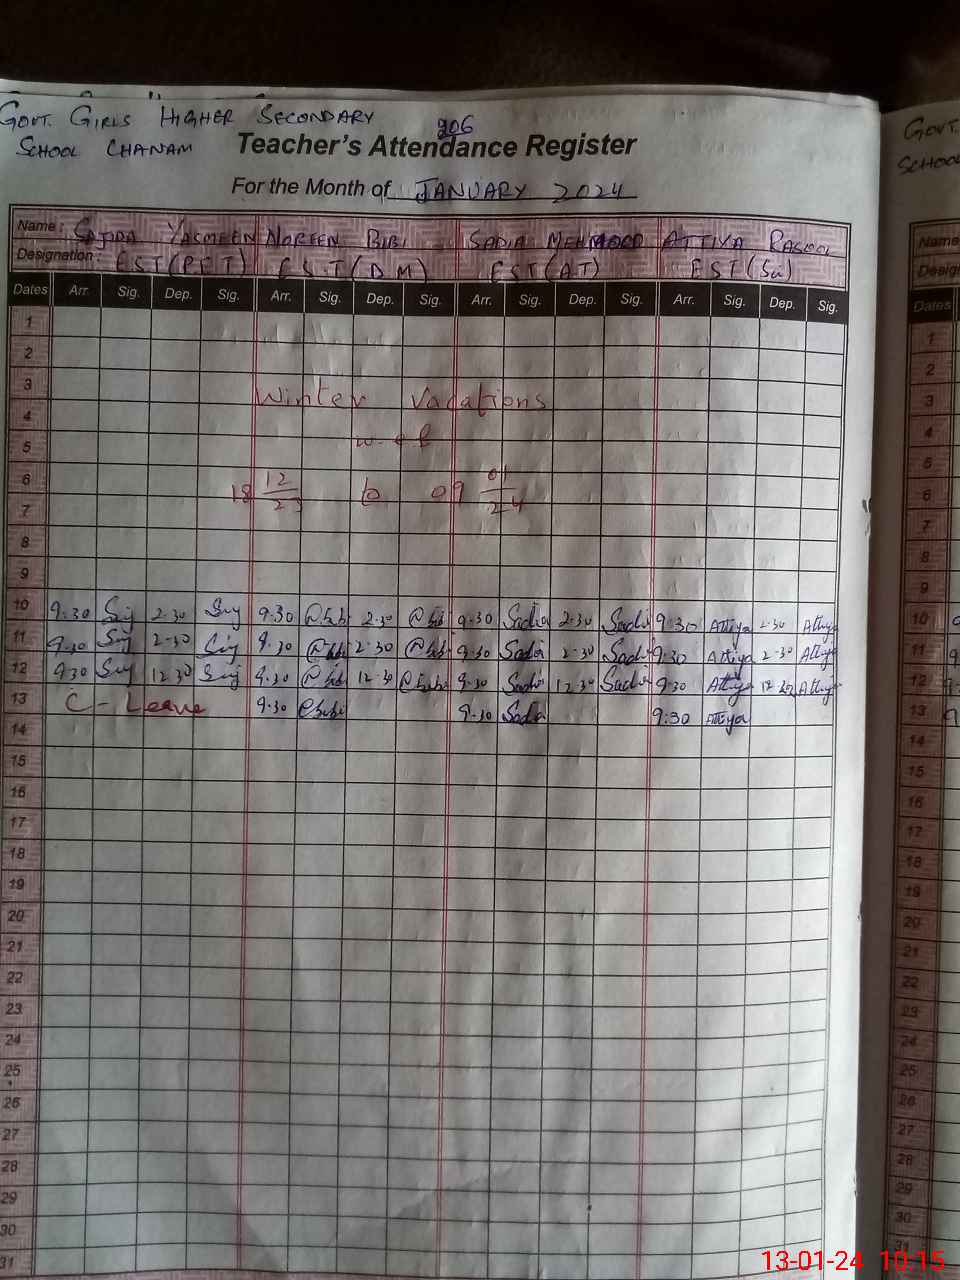 GOVT. GIRLS HIGHER SECONDARY
SCHOOL CHANAM
206
Teacher's Attendance Register
For the Month of JANUARY 2024
Name: SAJIDA YASMEEN NOREEN BIBI SADIA MEHMOOD ATTIYA RASOOL
Designation: EST(PET) EST(DM) EST(AT) EST(Sc)
Dates Arr. Sig. Dep. Sig. Arr. Sig. Dep. Sig. Arr. Sig. Dep. Sig. Arr. Sig. Dep. Sig.
1
2
3
Winter Vacations
4
w.e.f
5
6
18 12/23 to 09 01/24
7
8
9
10 9.30 2.30 9.30 2.30 9.30 Sadia 2.30 Sadia 9:30 Attiya 2.30 Attiya
11 9.30 2.30 9.30 2.30 9.30 Sadia 2.30 Sadia 9:30 Attiya 2.30 Attiya
12 9.30 12.30 9.30 12.30 9.30 Sadia 12.30 Sadia 9.30 Attiya 12.30 Attiya
13 C-Leave 9.30 9.30 Sadia 9:30 Attiya
14
15
16
17
18
19
20
21
22
23
24
25
26
27
28
29
30
31
GOVT.
SCHOOL
Name
Design
Dates
1
2
3
4
5
6
7
8
9
10 9
11 9
12 9
13 9
14
15
16
17
18
19
20
21
22
23
24
25
26
27
28
29
30
31
13-01-24 10:15